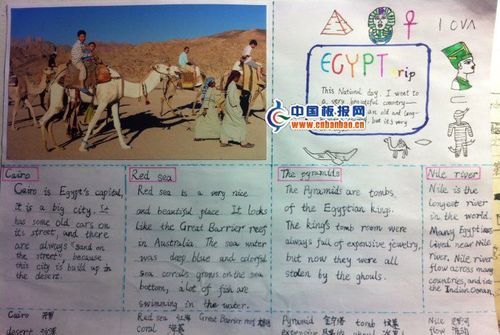 I OVA
EGYPT trip
This National day, I went to
a very beautiful country—
an old and long
but it's very
中国板报网
www.cubanbao.cn
Cairo
Cairo is Egypt's capital,
it is a big city. It
has some old cars on
its street, and there
are always "sand on
the street", because
this city is build up in
the desert.
Red sea
Red sea is a very nice
and beautiful place. It looks
like the Great Barrier reef
in Australia. The sea water
was deep blue and colorful
sea corrals grows on the sea
bottom, a lot of fish are
swimming in the water.
The pyramids
The Pyramids are tombs
of the Egyptian king.
The king's tomb room were
always full of expensive jewelry,
but now they were all
stolen by the ghouls.
Nile river
Nile is the
longest river
in the world.
Many Egyptians
lived near Nile
river. Nile river
flow across many
countries, and into
the Indian Ocean.
Cairo 开罗
desert 沙漠
Red sea 红海 Great Barrier reef
coral
Pyramid 金字塔 tomb
Nile
Indian Ocean